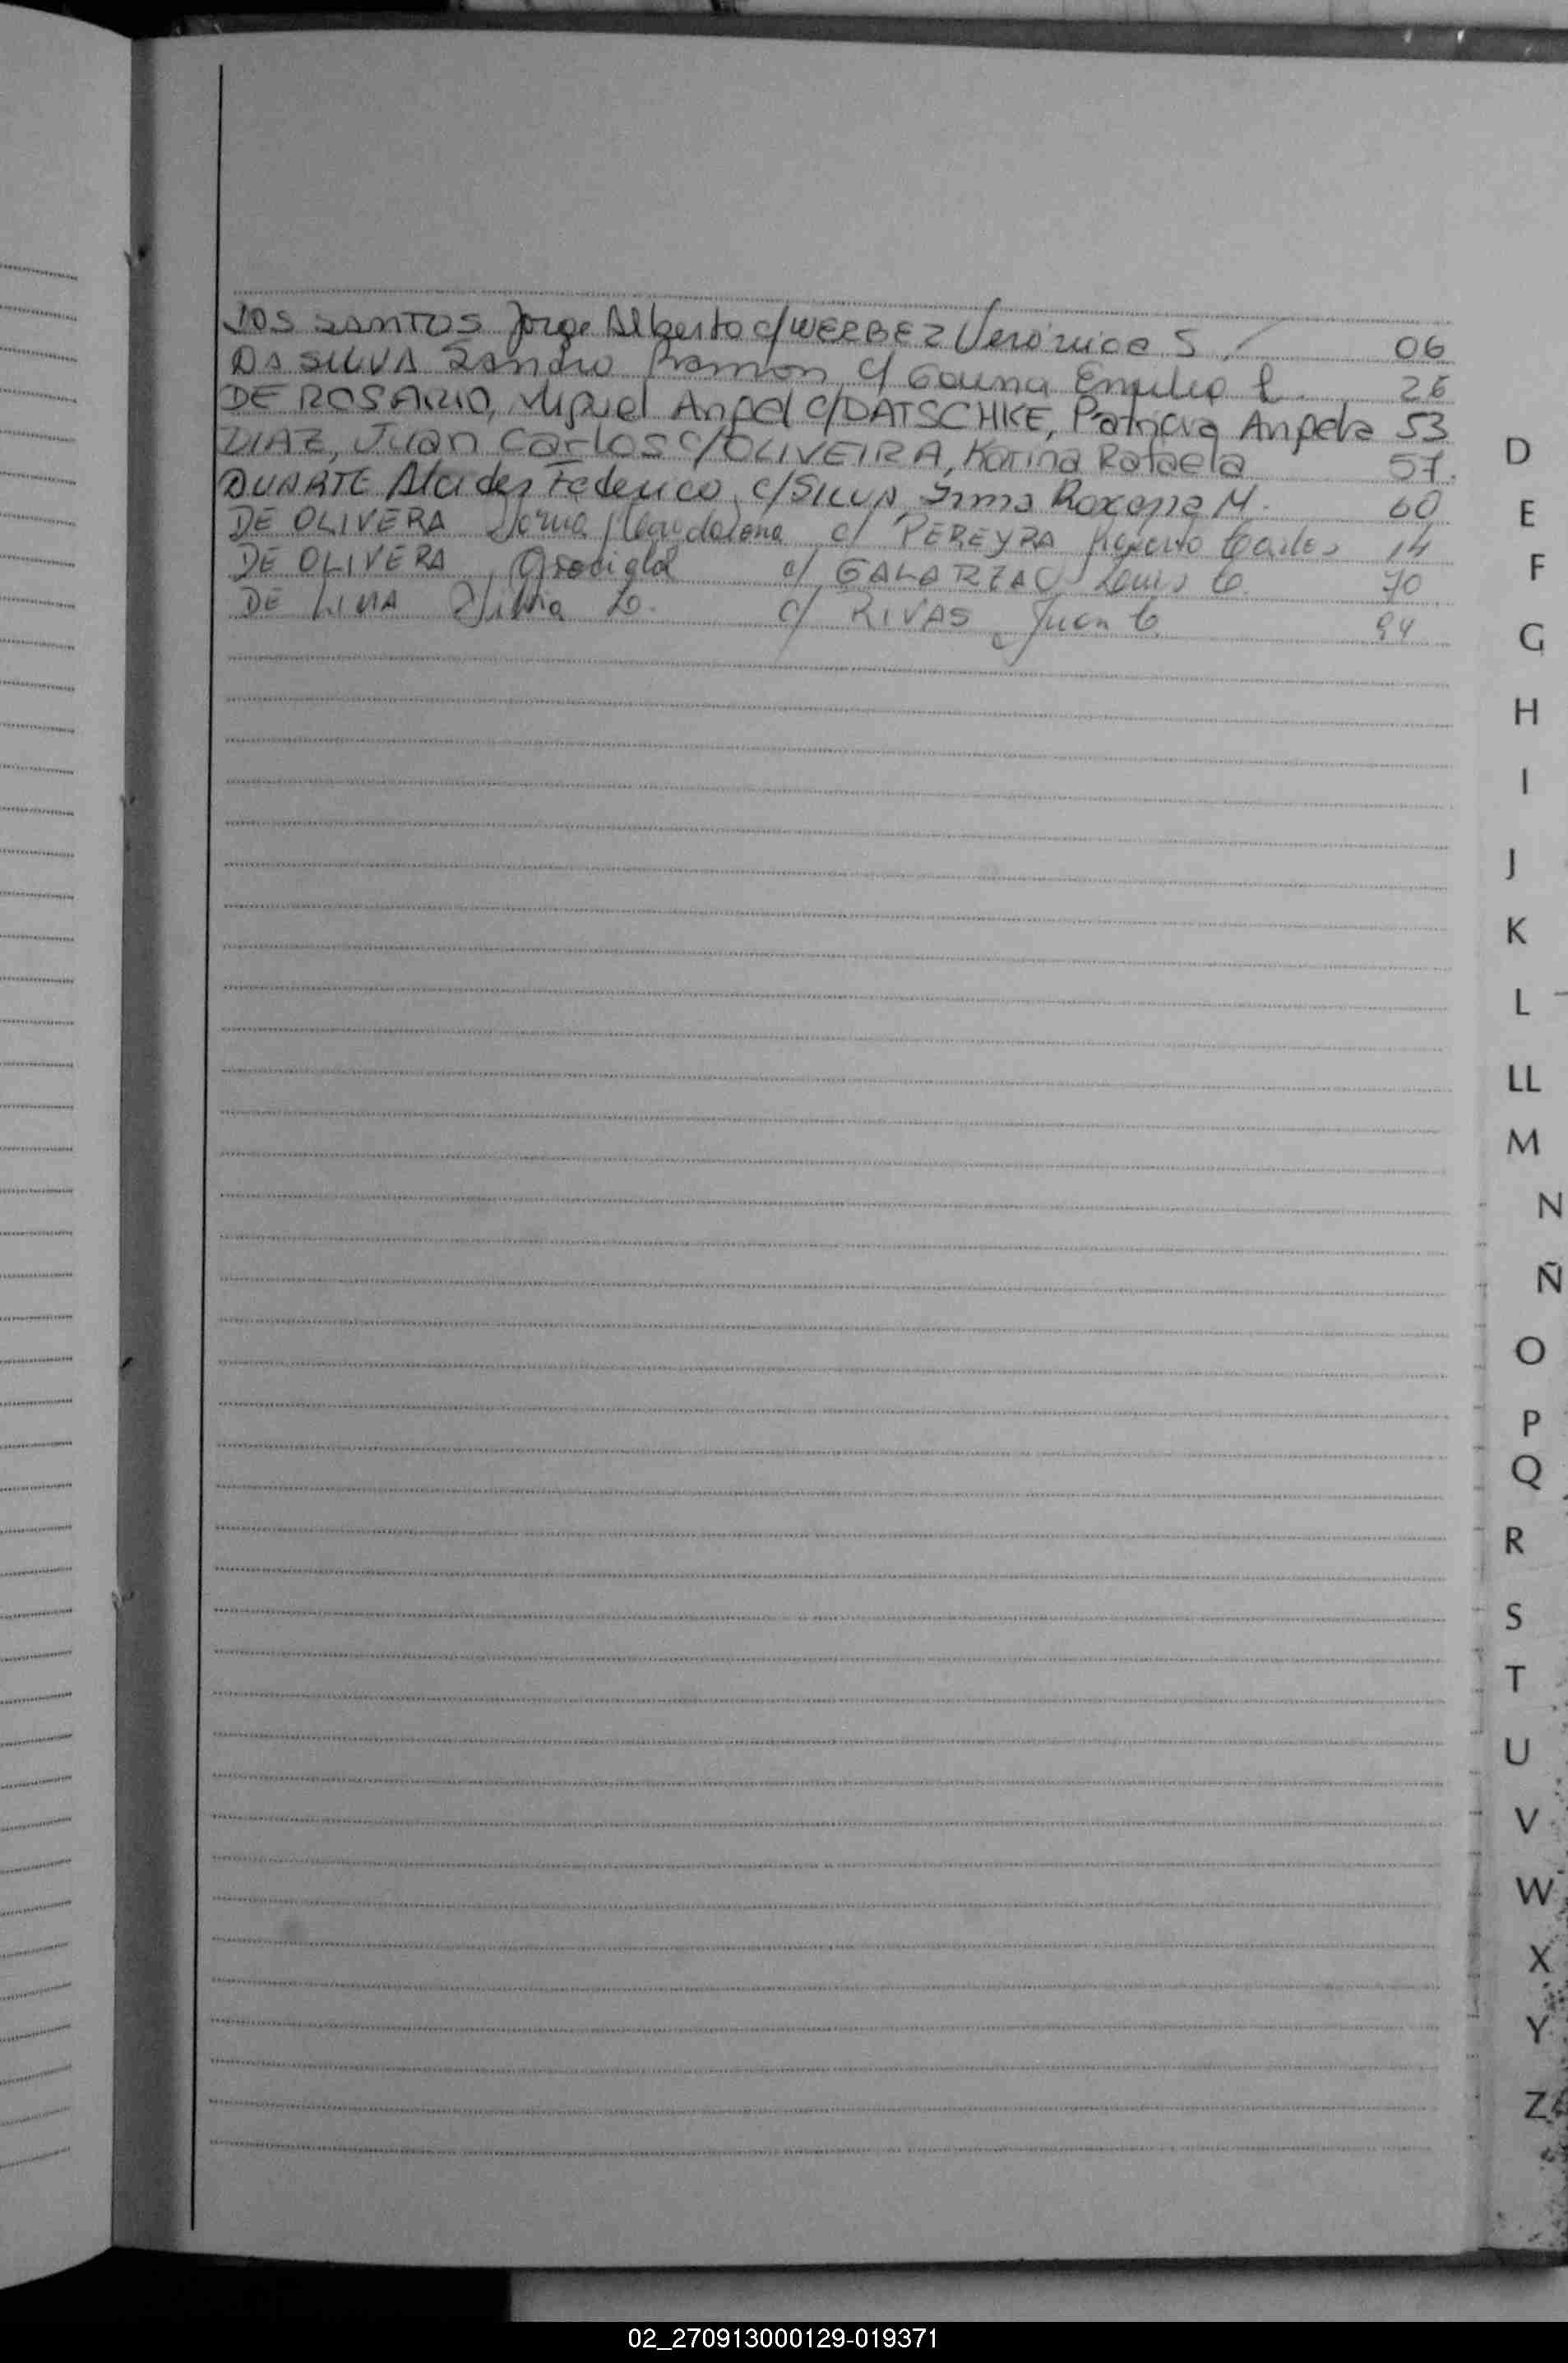 DOS SANTOS Jorge Alberto c/ WERBEZ Verónica S. 06
DA SILVA Sandro Ramon c/ Gauna 26
DE ROSARIO, Miguel Angel c/ DATSCHKE, Patricia Angela 53
DIAZ, Juan Carlos c/ OLIVEIRA, Karina Rafaela 57.
DUARTE Alcides Federico c/ SILVA, Irma Roxana M. 60
DE OLIVERA Norma Magdalena c/ PEREYRA Carlos 14
DE OLIVERA c/ GALARZA Luis C. 70
DE LIMA Silvia c/ RIVAS Juan C. 94
D
E
F
G
H
I
J
K
L
LL
M
N
Ñ
O
P
Q
R
S
T
U
V
W
X
Y
Z
02_270913000129-019371